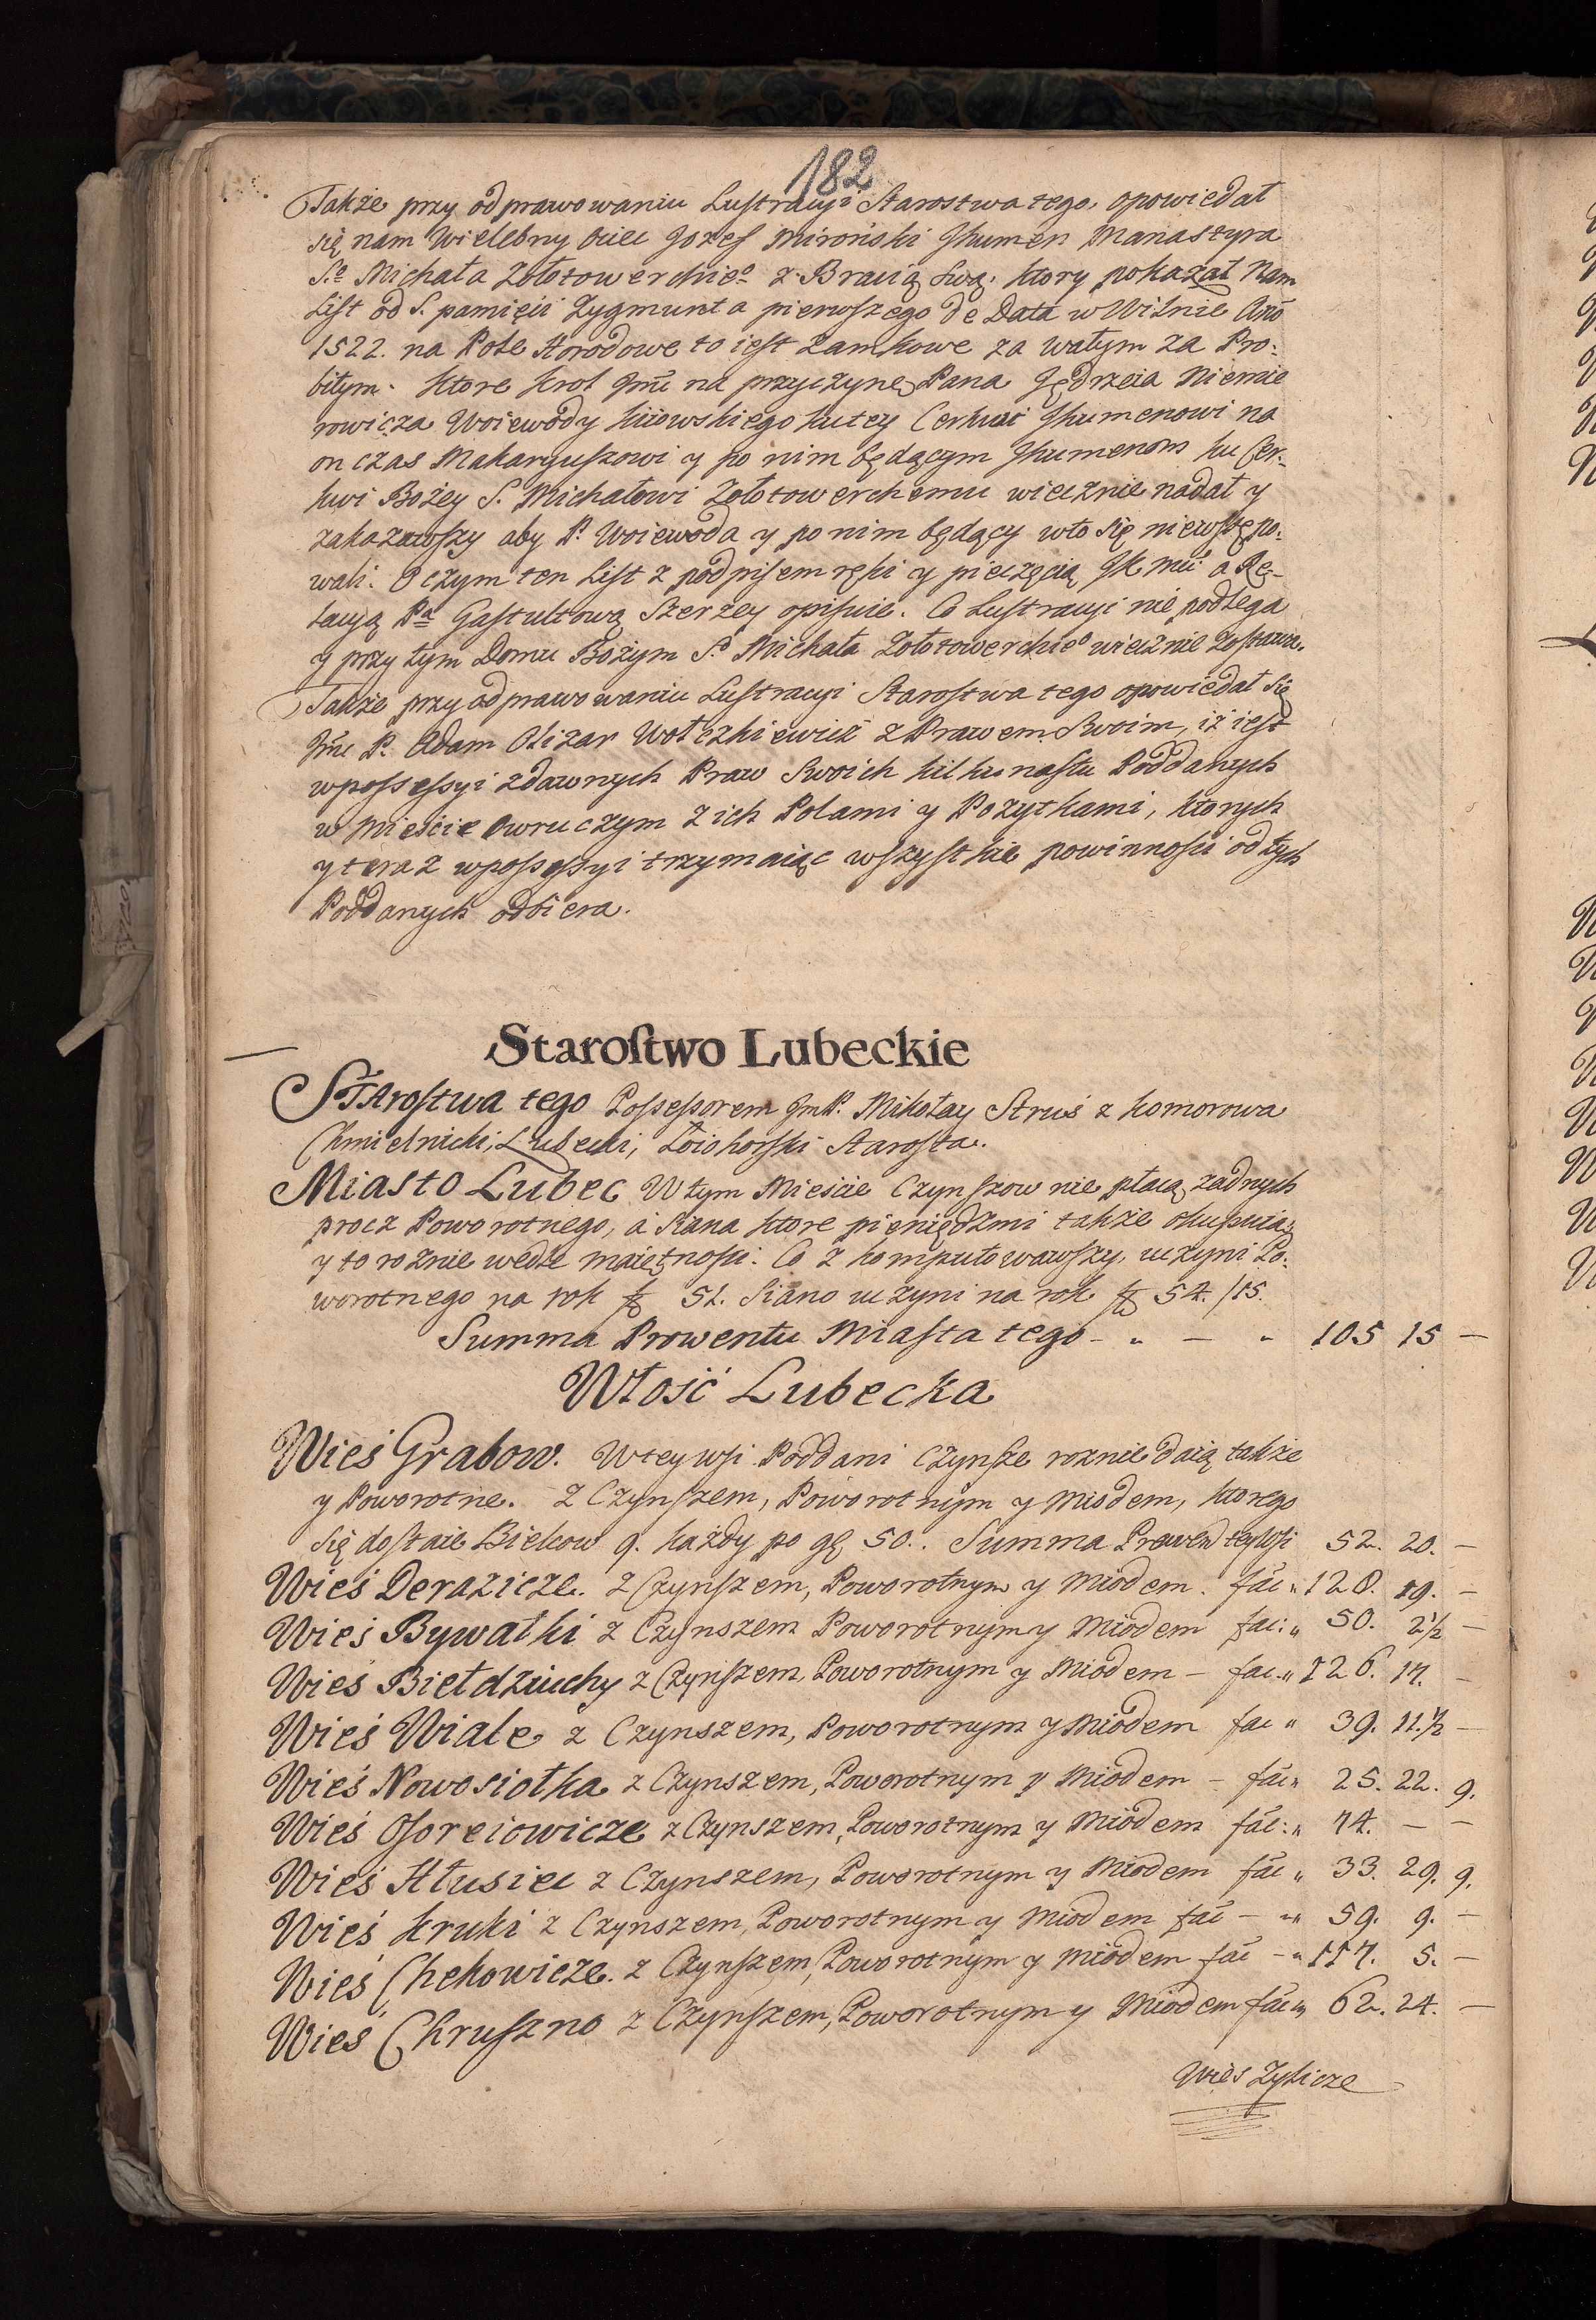 182
Także przy odprawowaniu Lustracyi Starostwa tego, opowiedał
się nam Wielebny Ociec Jozef Miroński Jhumen Manastyra
S.º Michała Zołotowerchieº z Bracią swą. ktory pokazał Nam
List od S. pamięci Zygmunta pierwszego de Data w Wilnie Año
1522. na Pole Horodowe to iest Zamkowe za wałym za Pro:
bitym. Ktore Krol Jmć na przyczynę Pana Jędrzeia Niemie
rowicza Woiewody Kiiowskiego ku tey Cerkwi Jhumenowi na
on czas Makaryuszowi y po nim będącym Jhumenom ku Cer:
kwi Bożey S. Michałowi Zołotowerchemu wiecznie nadał y
zakazawszy aby P. Woiewoda y po nim będący wto się niewstępo:
wali. O czym ten List z podpisem ręki y pieczęcią JK Mći a Re-
lacyą Pª Gasztultową szerzey opisuie. Co Lustracyi nie podlega
y przy tym Domu Bożym Sº Michała Zołotowerchieº wiecznie zostawa.
Także przy odprawowaniu Lustracyi Starostwa tego opowiedał się
Jmć P. Adam Olizar Wołczkiewicz z Prawem Swoim, iż iest
wpossessyi zdawnych Praw Swoich kilkunastu Poddanych
w Mieście Owruczym z ich Polami y Pożytkami, ktorych
y teraz wpossessyi trzymaiąc wszystkie powinności od tych
Poddanych odbiera.
Starostwo Lubeckie
STArostwa tego Possessorem Jm P. Mikołay Struś z Komorowa
Chmielnicki, Lubecki, Łoiohorski Starosta.
Miasto Lubec W tym Mieście Czynszow nie płacą żadnych
procz Poworotnego, a Siana ktore pieniędzmi także okupuią,
y to roznie wedle maiętności. Co z komputowawszy, uczyni Po:
worotnego na rok fł 51. Siano uczyni na rok fł 54. /15.
Summa Prowentu Miasta tego - " - " 105 15 -
Włość Lubecka
Wieś Grabow. W tey wsi Poddani Czynsze roznie daią także
y Poworotne. Z Czynszem, Poworotnym y Miodem, ktorego
się dostaie Bielcow 9. każdy po gę 50.. Summa Prowen teywsi 52. 20. -
Wieś Derazicze. z Czynszem, Poworotnym y Miodem. fác " 128. 19. -
Wieś Bywałki z Czynszem Poworotnym y Miodem fac: " 50. 2½ -
Wieś Biełdziuchy z Czynszem, Poworotnym y Miodem - fac. " 126. 17. -
Wieś Wiale z Czynszem, Poworotnym y Miodem fac " 39. 11.½ -
Wieś Nowosiołka z Czynszem, Poworotnym y Miodem - fác " 25. 22. 9.
Wieś Osoreiowicze z Czynszem, Poworotnym y Miodem fác: " 74. - -
Wieś Hłusiec z Czynszem, Poworotnym y Miodem fác " 33. 29. 9.
Wieś Kruki z Czynszem, Poworotnym y Miodem fác - " 59. 9. -
Wieś Chekowicze. z Czynszem, Poworotnym y Miodem fác - " 117. 5. -
Wieś Chruszno z Czynszem, Poworotnym y Miodem fác " 62. 24. -
Wieś Zylicze